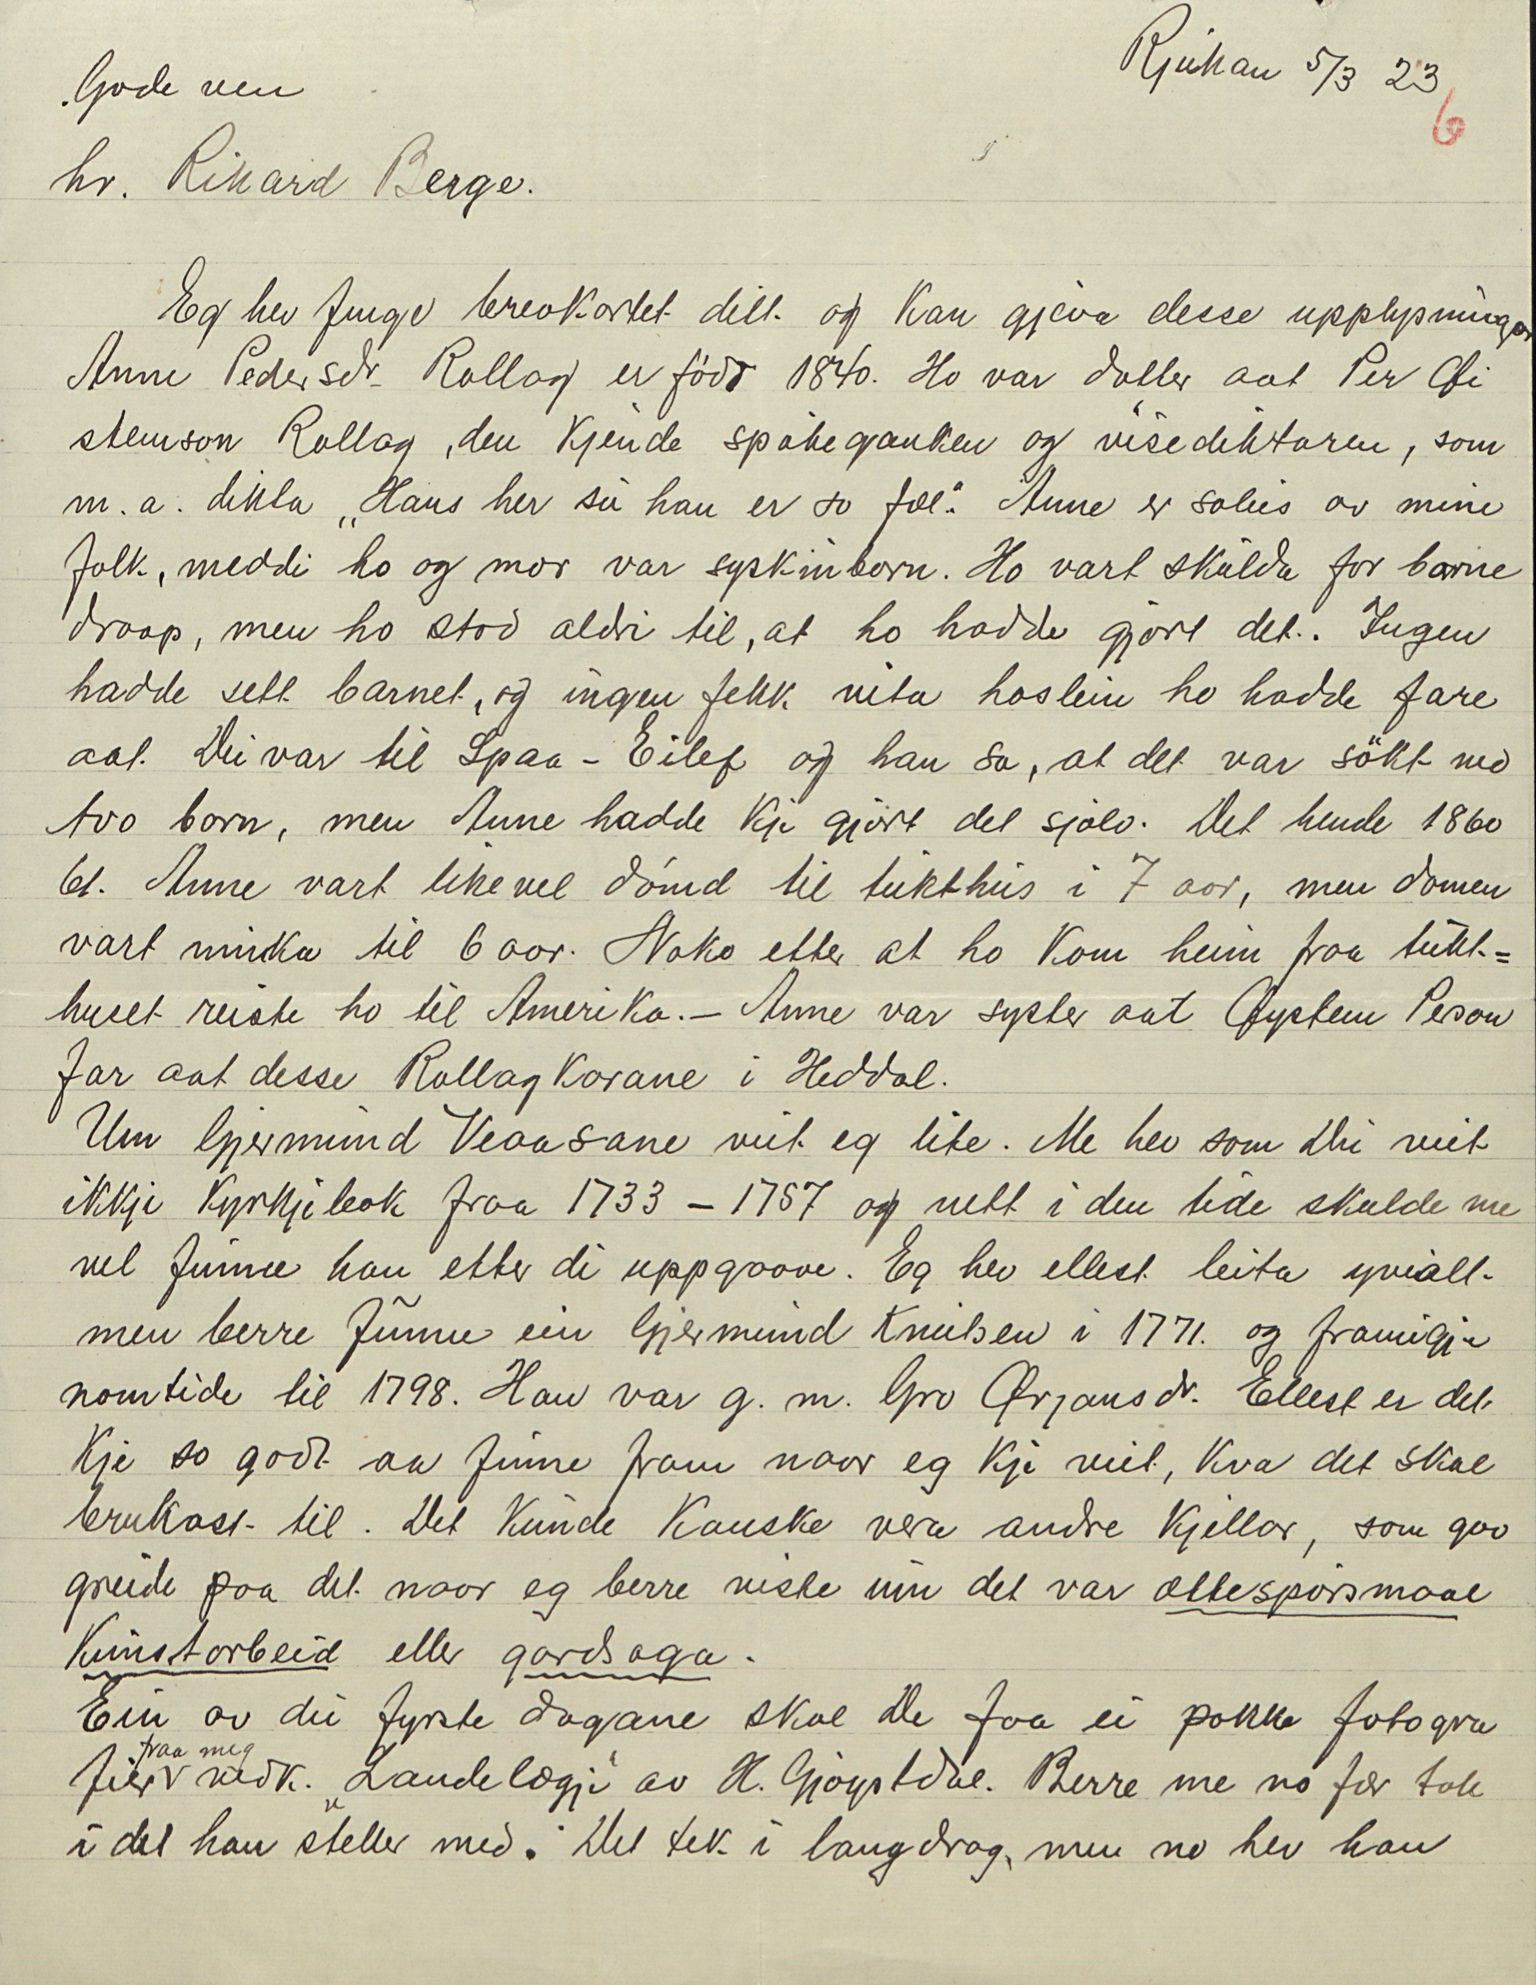 Rjukan 5/3 23
6
Gode ven
hr. Rikard Berge.
Eg hev funge brevkortet ditt og kan gjeva desse upplysningar
Anne Pedersdr. Rollag er födt 1840. Ho var dotter aat Per Öi
stenson Rollag, den kjende spökeganken og visediktaren, som
m. a. dikta „Hans her su han er so fæl". Anne er soleis av mine
folk, meddi ho og mor var syskinborn. Ho vart skulda for barne
draap, men ho stod aldri til, at ho hadde gjört det. Ingen
hadde sett barnet, og ingen fekk vita hoslein ho hadde fare
aat. Dei var til Spaa-Eilef og han sa, at det var sökt ned
tvo born, men Anne hadde kje gjört det sjölv. Det hende 1860
61. Anne vart likevel dömd til tukthus i 7 aar, men domen
vart minka til 6 aar. Noko etter at ho kom heim fraa tukt=
huset reiste ho til Amerika. – Anne var syster aat Öystein Person
far aat desse Rollagkarane i Heddal.
Um Gjermund Veaasane veit eg lite. Me hev som Di veit
ikkje kyrkjebok fraa 1733 – 1757 og nett i den tide skulde me
vel finne han etter di uppgaave. Eg hev ellest leita yviallt
men berre funne ein Gjermund Knutsen i 1771. og framigje
nomtide til 1798. Han var g. m. Gro Örjansdr. Ellest er det
kje so godt aa finne fram naar eg kje veit, kva det skal
brukast til. Det kunde kanske vera andre kjellor, som gav
greide paa det naar eg berre viste um det var ættespörsmaal
kunstarbeid eller gardsoga.
Ein av dei fyrste dagane skal De faa ei pakke fotogra
fier fraa meg vedk. „Landelægje" av H. Gjöystdal. Berre me no fær tak
i det han steller med. Det tek i langdrag, men no hev han